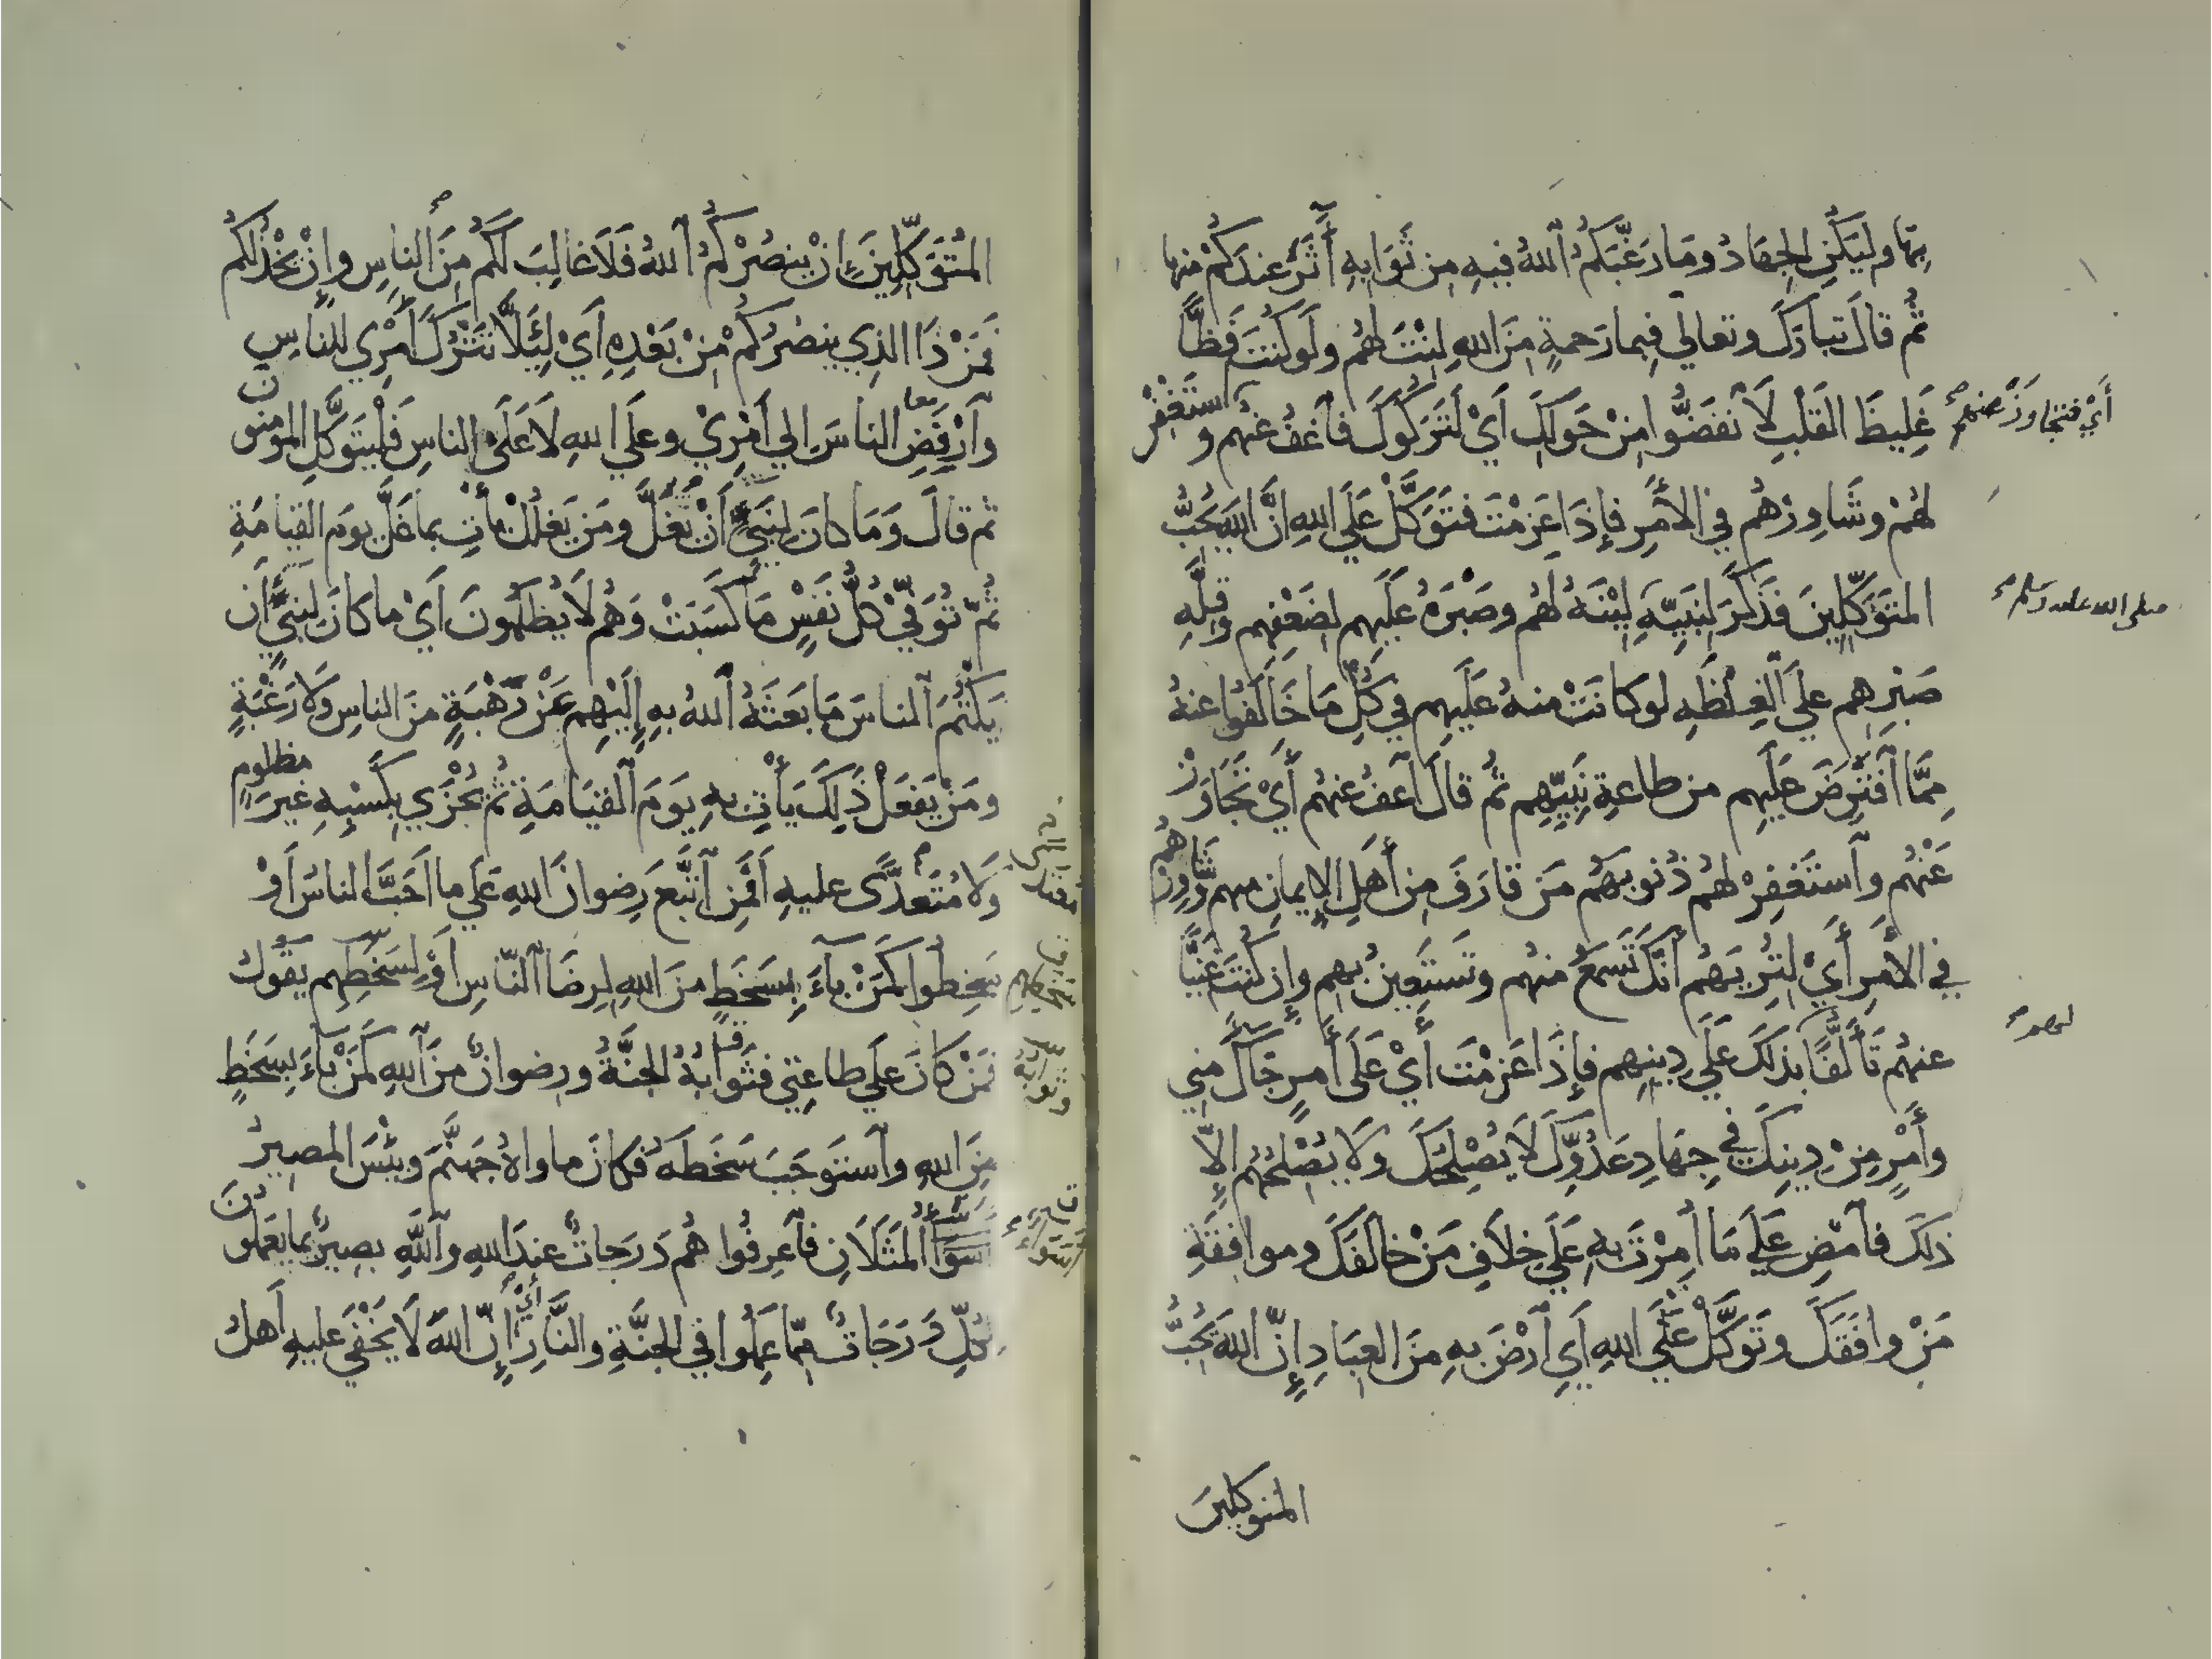 مما وليكن الجهاد وما رغبكم الله فيه من ثوابه آثر عندكم منها
ثم قال تبارك وتعالى فبما رحمة من الله لنت لهم ولو كنت فظا
غليظ القلب لانفضوا من حولك أي لتركوك فاعف عنهم واستغفر
أي فتجاوز عنهم
لهم وشاورهم في الأمر فإذا عزمت فتوكل على الله إن الله يحب
المتوكلين فذكر لنبيه لينه لهم وصبره عليهم لضعفهم وقلة
صلى الله عليه وسلم
صبرهم على الغلظة لو كانت منه عليهم في كل ما خالفوا عنه
مما افترض عليهم من طاعة نبيهم ثم قال اعف عنهم أي تجاوز
عنهم واستغفر لهم ذنوبهم من قارف من أهل الإيمان منهم وشاورهم
في الأمر أي لتريهم أنك تسمع منهم وتستعين بهم وإن كنت غنيا
عنهم تألفا بذلك على دينهم فإذا عزمت أي على أمر جاك مني
لهم
وأمر من دينك في جهاد عدوك لا يصلحك ولا يصلحهم إلا
ذلك فامض على ما أمرت به على خلاف من خالفك وموافقة
من وافقك وتوكل على الله أي ارض به من العباد إن الله يحب
المتوكلين
المتوكلين إن ينصركم الله فلا غالب لكم من الناس وإن يخذلكم
فمن ذا الذي ينصركم من بعده أي لئلا تترك أمري للناس
وارفض الناس إلى أمري وعلى الله لا على الناس فليتوكل المومنون
معا
ثم قال وما كان لنبي أن يغل ومن يغلل يأت بما غل يوم القيامة
ثم توفى كل نفس ما كسبت وهم لا يظلمون أي ما كان لنبي أن
يكتم الناس ما بعثه الله به إليهم عن رهبة من الناس ولا رغبة
ومن يفعل ذلك يأت به يوم القيامة ثم يجزى بكسبه غير مظلوم
ولا متعدى عليه أفمن اتبع رضوان الله على ما أحب الناس أو
سخطوا كمن باء بسخط من الله لرضا الناس أو لسخطهم يقول
أفمن كان على طاعتي فثوابه الجنة ورضوان من الله كمن باء بسخط
وثوابه
من الله واستوجب سخطه فكان ماواه جهنم وبئس المصير
أسواء المثلان فاعرفوا هم درجات عند الله والله بصير بما يعملون
لكل درجات مما عملوا في الجنة والنار أي إن الله لا يخفى عليه أهل